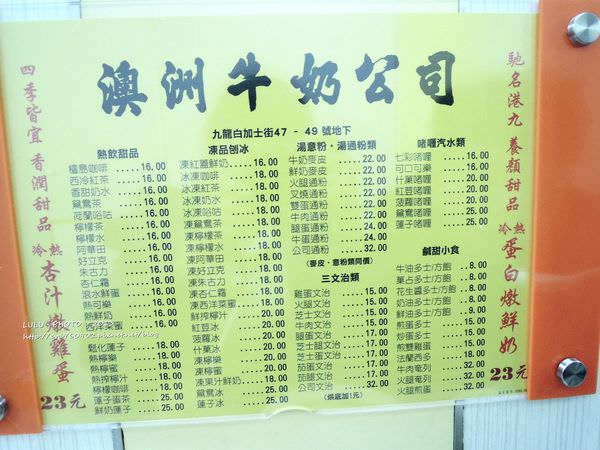 澳洲牛奶公司
九龍白加士街47 - 49 號地下
馳名港九 養顏甜品
冷熱 蛋白燉鮮奶
23元
四季皆宜 香潤甜品
冷熱 杏汁燉雞蛋
23元
熱飲甜品
檀島咖啡 ..... 16.00
西冷紅茶 ..... 16.00
香甜奶水 ..... 16.00
鴛鴦茶 ..... 16.00
荷蘭咕咕 ..... 16.00
檸檬茶 ..... 16.00
檸檬水 ..... 16.00
阿華田 ..... 16.00
好立克 ..... 16.00
朱古力 ..... 16.00
杏仁霜 ..... 16.00
滾水鮮蛋 ..... 16.00
熱可樂 ..... 16.00
熱鮮奶 ..... 16.00
鬆化蓮子 ..... 18.00
熱檸樂 ..... 18.00
熱檸蜜 ..... 18.00
熱鮮檸汁 ..... 18.00
檸檬咖啡 ..... 18.00
蓮子蛋茶 ..... 25.00
鮮奶蓮子 ..... 25.00
凍品刨冰
凍紅蓋鮮奶 ..... 16.00
冰凍咖啡 ..... 18.00
冰凍紅茶 ..... 18.00
冰凍奶水 ..... 18.00
冰凍咕咕 ..... 18.00
凍鴛鴦茶 ..... 18.00
凍檸檬茶 ..... 18.00
凍檸檬水 ..... 18.00
凍阿華田 ..... 18.00
凍好立克 ..... 18.00
凍朱古力 ..... 18.00
凍杏仁霜 ..... 18.00
凍西洋菜蜜 ..... 18.00
鮮搾檸汁 ..... 20.00
紅荳冰 ..... 20.00
菠蘿冰 ..... 20.00
什菓冰 ..... 20.00
凍檸樂 ..... 20.00
凍檸蜜 ..... 20.00
凍果汁鮮奶 ..... 20.00
鴛鴦冰 ..... 25.00
蓮子冰 ..... 25.00
湯意粉·湯通粉類
牛奶麥皮 ..... 22.00
鮮奶麥皮 ..... 22.00
火腿通粉 ..... 22.00
叉燒通粉 ..... 22.00
雙蛋通粉 ..... 22.00
牛肉通粉 ..... 22.00
腿蛋通粉 ..... 24.00
牛蛋通粉 ..... 24.00
公司通粉 ..... 32.00
(麥皮·意粉類同價)
三文治類
雞蛋文治 ..... 15.00
火腿文治 ..... 15.00
芝士文治 ..... 15.00
牛肉文治 ..... 15.00
腿蛋文治 ..... 17.00
芝士腿文治 ..... 17.00
芝士蛋文治 ..... 17.00
茄蛋文治 ..... 17.00
茄腿文治 ..... 17.00
公司文治 ..... 32.00
(烘底加1元)
啫喱汽水類
七彩啫喱 ..... 16.00
可口可樂 ..... 16.00
什菓啫喱 ..... 20.00
紅荳啫喱 ..... 20.00
菠蘿啫喱 ..... 20.00
鴛鴦啫喱 ..... 25.00
蓮子啫喱 ..... 25.00
鹹甜小食
牛油多士/方飽 .. 8.00
菓占多士/方飽 .. 8.00
花生醬多士/方飽 .. 8.00
奶油多士/方飽 .. 8.00
鮮油多士/方飽 .. 8.00
煎蛋多士 ..... 16.00
炒蛋多士 ..... 16.00
煎雙雞蛋 ..... 16.00
法蘭西多 ..... 18.00
牛肉奄列 ..... 32.00
火腿奄列 ..... 32.00
火腿煎蛋 ..... 32.00